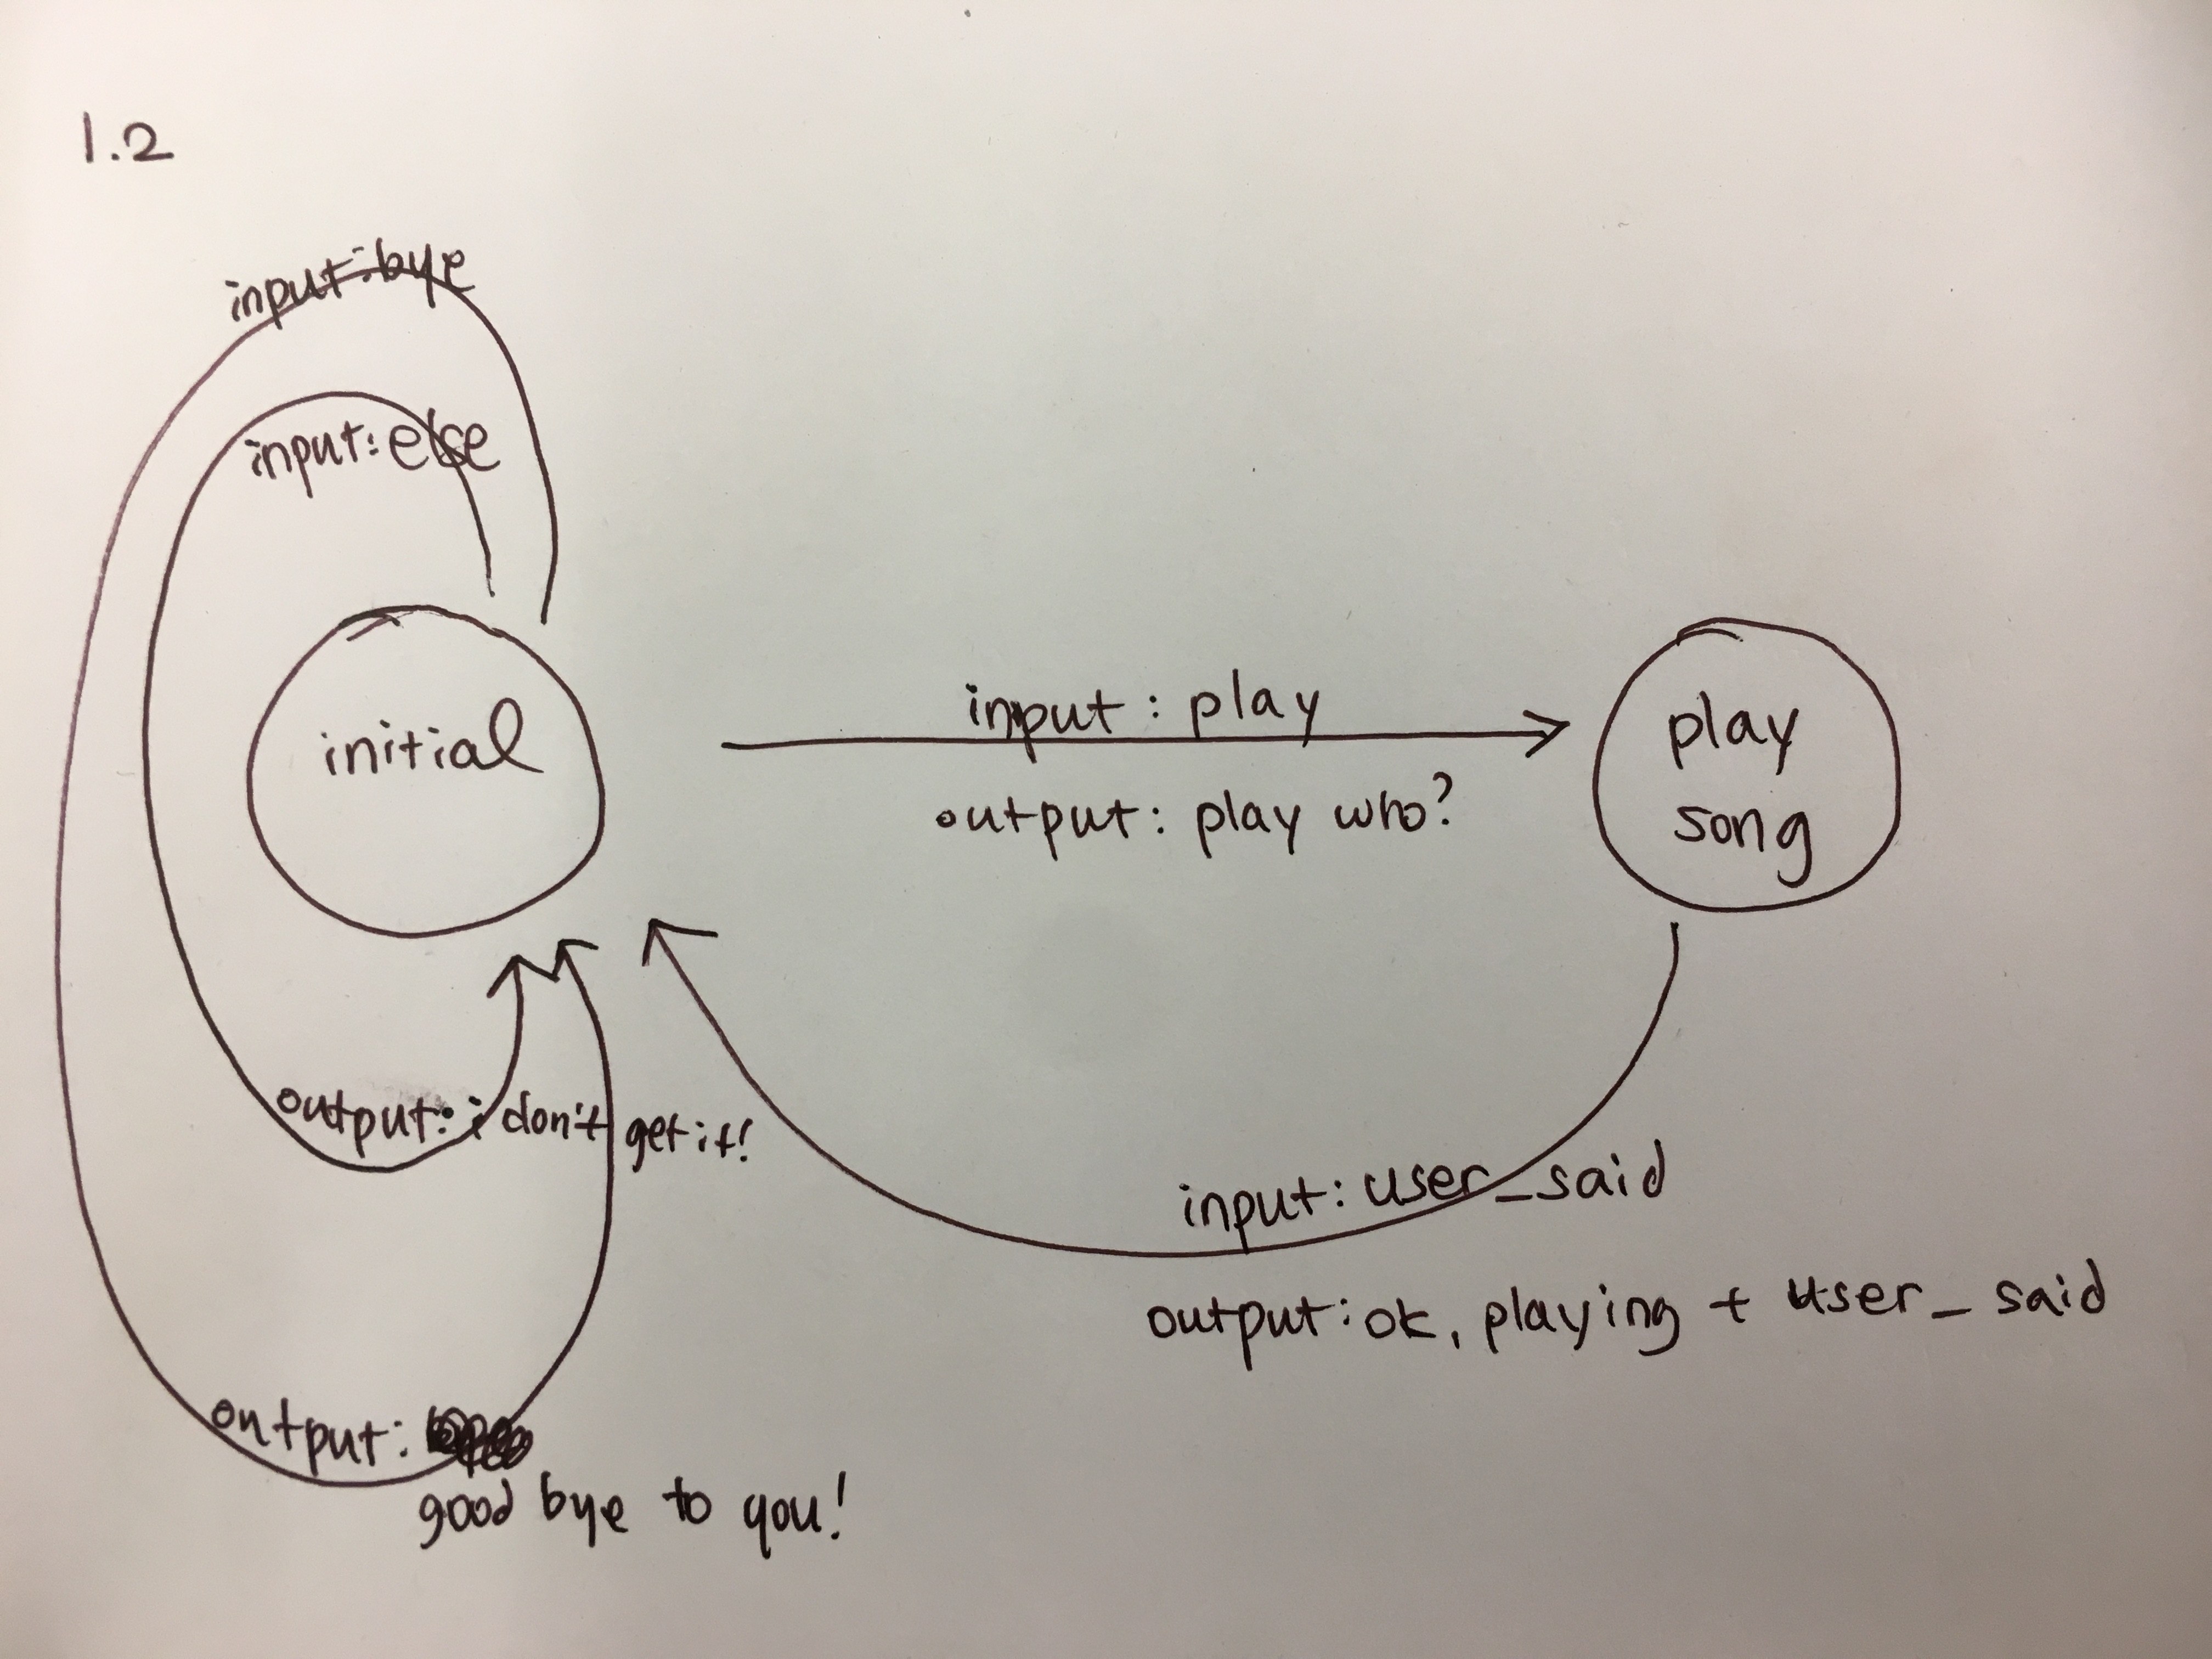 1.2
input: bye
input: else
initial
input: play
output: play who?
play
song
output: i don't get it!
input: user_said
output: ok, playing + user_said
output:
good bye to you!